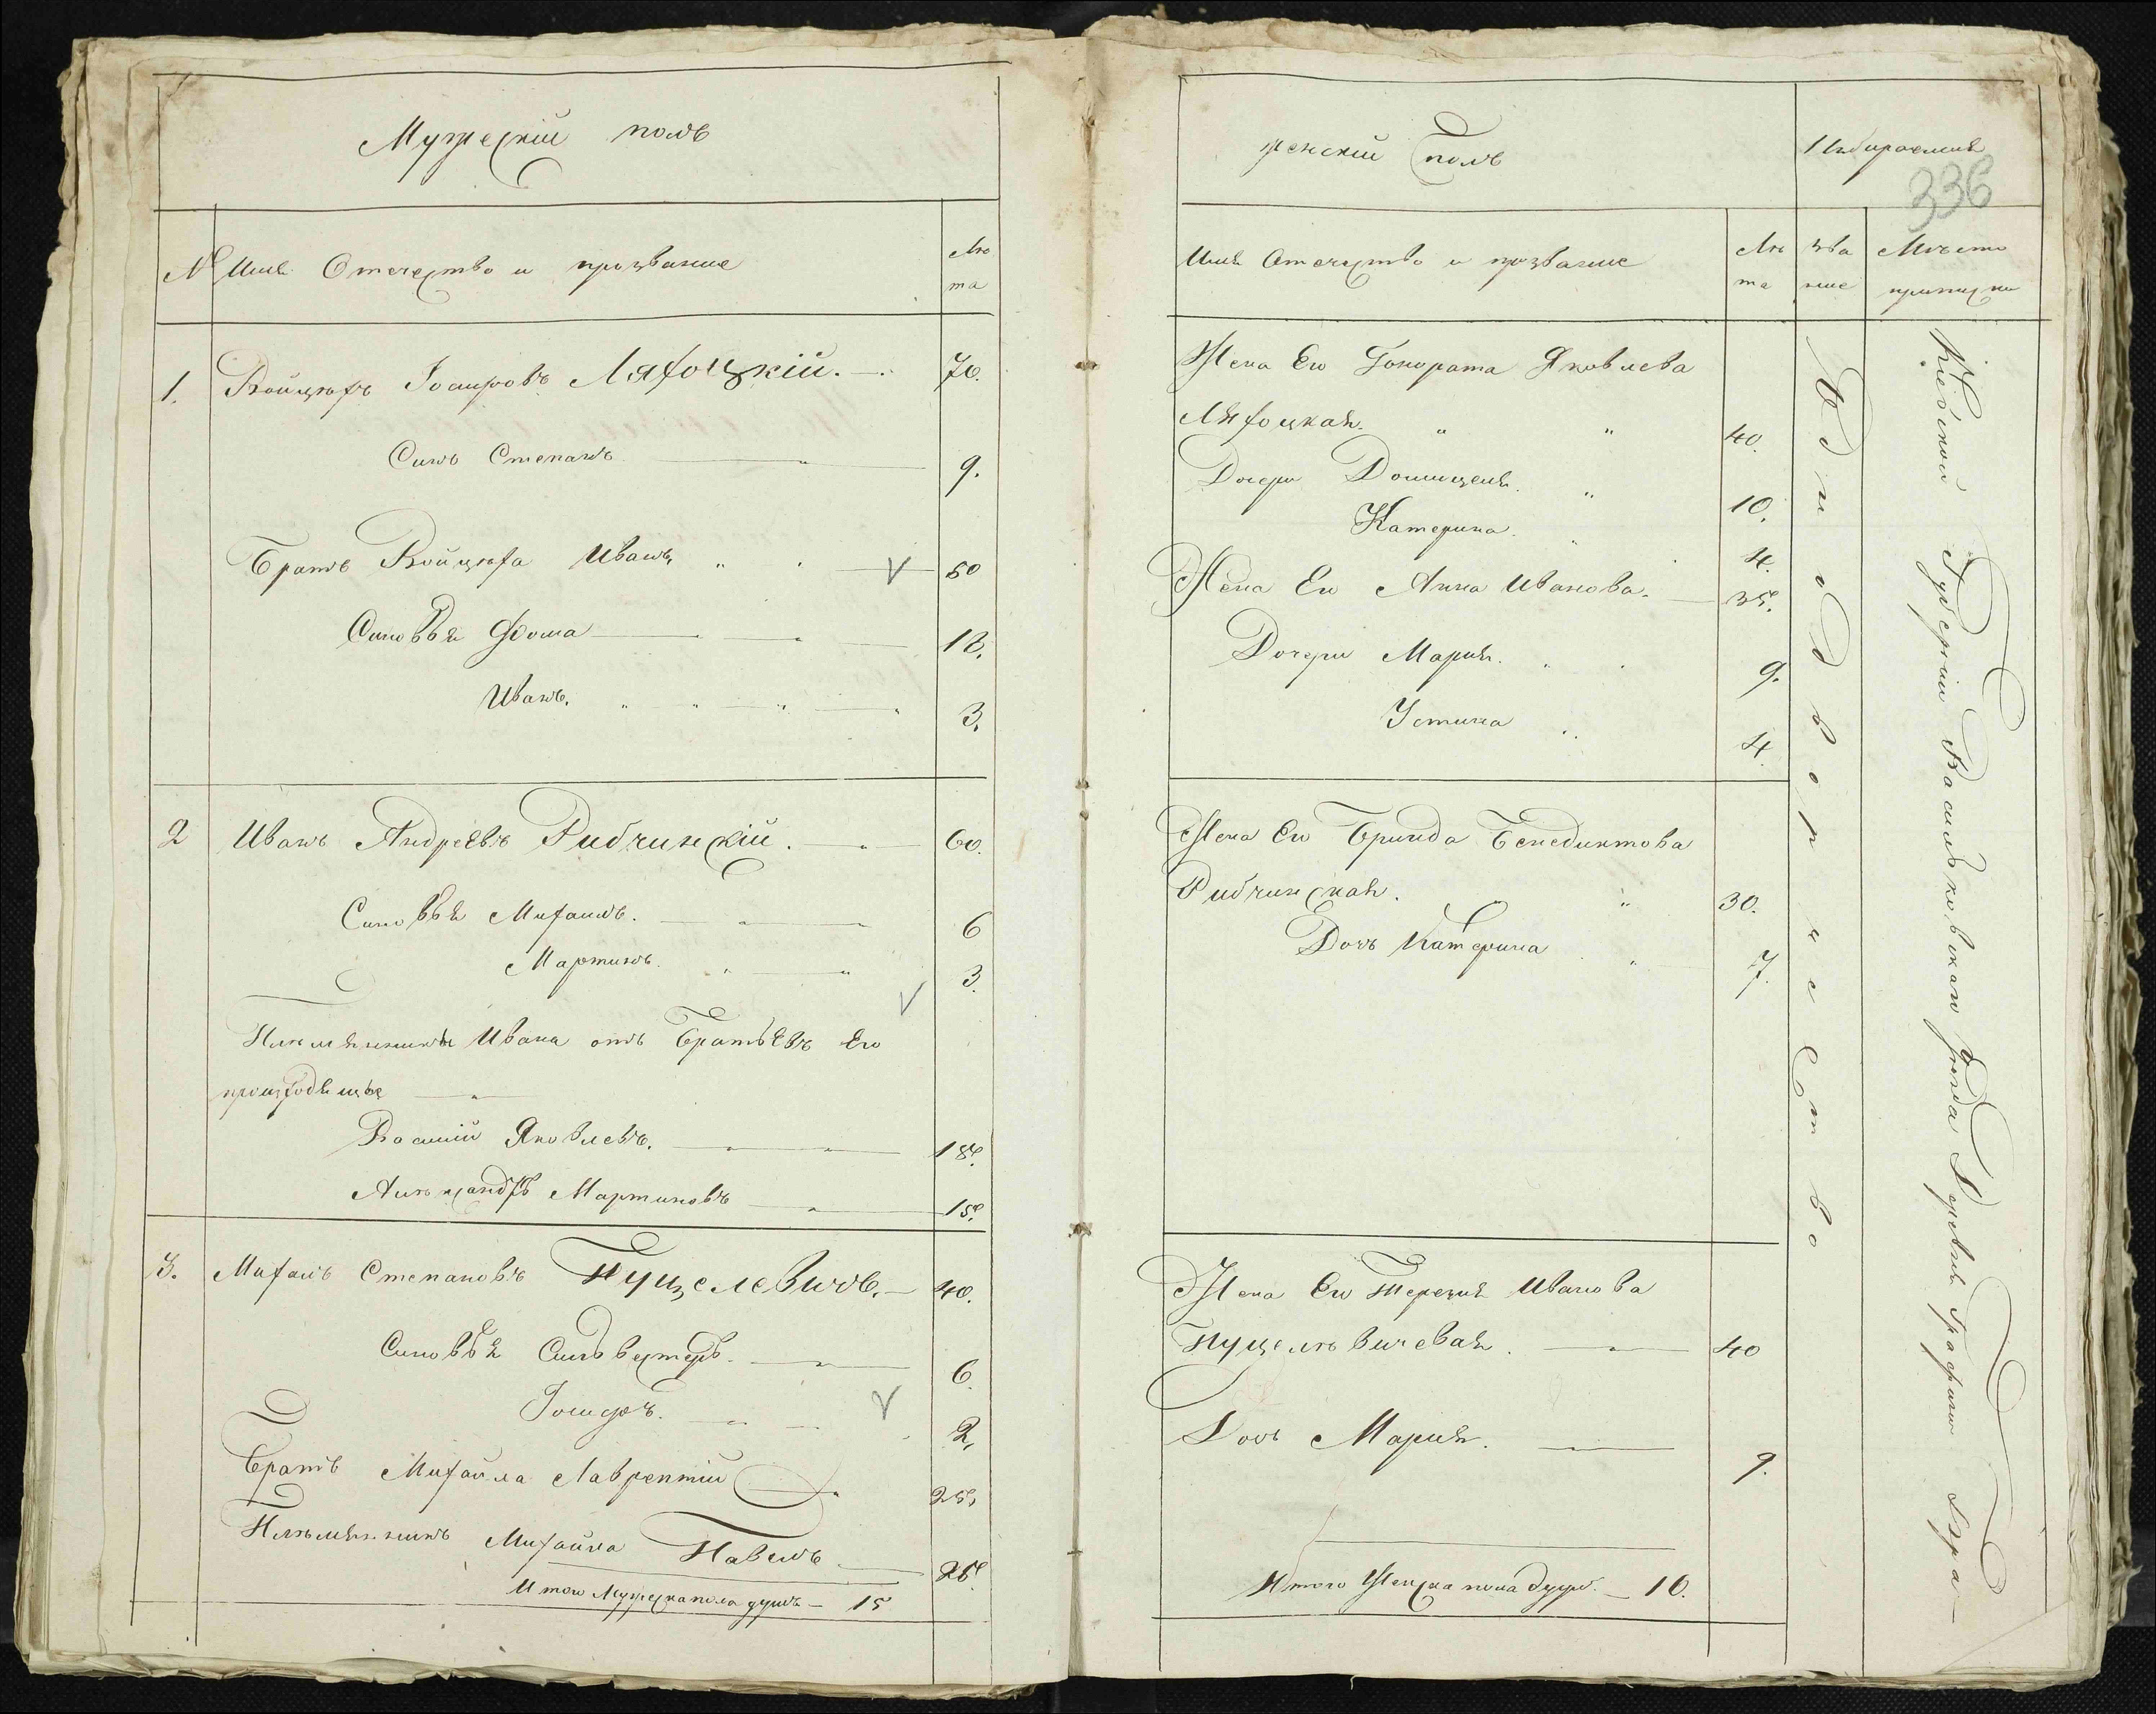 Мужескій полъ
№ Имя Отечество и прозвание Лѣ
та
1. Войцѣхъ Іосифовъ Ляхоцкій. 70.
Синъ Степанъ 9.
Братъ Войцѣха Иванъ 50
Синовья Фома 18.
Иванъ. 3.
2 Иванъ Андреевъ Рибчинскій. 60.
Синовья Михаилъ. 6
Мартинъ. 3.
Племянники Ивана отъ Братьевъ Его
произходящые
Василій Яковлевъ. 18.
Александръ Мартиновъ 15.
3. Михаилъ Степановъ Пуцелевичъ. 40.
Синовья Сильвестеръ. 6.
Іосифъ. 2.
Братъ Михайла Лаврентій 25.
Племянникъ Михайла Павелъ 25.
Итого Мужеска пола душъ 15
женскій полъ Избираемія
336
Имя Отечество и прозвание Лѣ
та зва
ние Мѣсто
приписки
Жена Его Гонората Яковлева
Ляхоцкая. 40.
Дочери Домицеля. 10.
Катерина. 4.
Жена Его Анна Иванова. 35.
Дочери Мария. 9.
Устина 4
Жена Его Бригида Бенедиктова
Рибчинская. 30.
Дочь Катерина 7.
Жена Его Терезия Иванова
Пуцелѣвичевая. 40
Дочь Мария. 9.
Итого Женска пола душъ. 10.
Однодворчество
Кіевской Губерніи Васильковскаго уѣзда Деревня